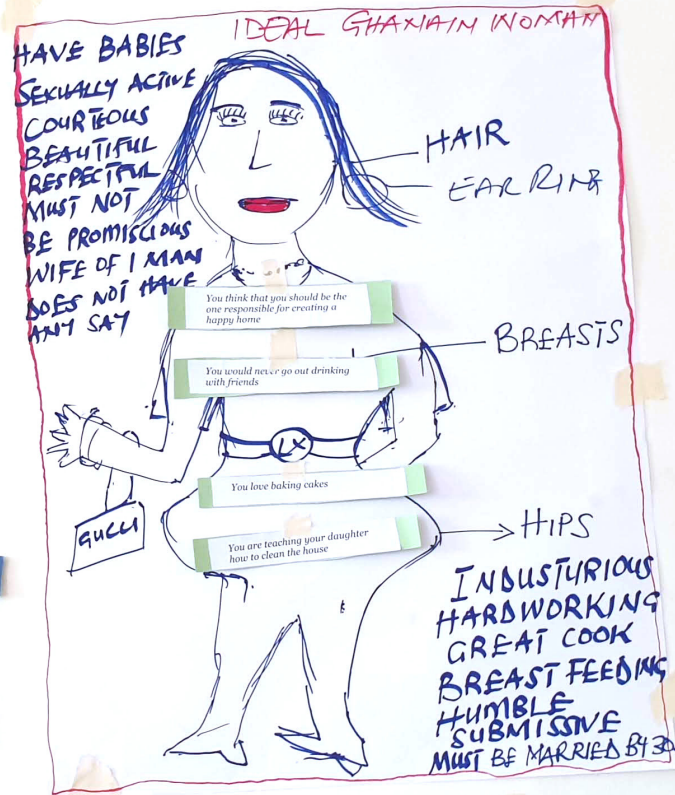 IDEAL GHANAIN WOMAN
HAVE BABIES
SEXUALLY ACTIVE
COURTEOUS
BEAUTIFUL
RESPECTFUL
MUST NOT
BE PROMISCIOUS
WIFE OF 1 MAN
DOES NOT HAVE
ANY SAY
HAIR
EAR RING
You think that you should be the
one responsible for creating a
happy home
BREASTS
You would never go out drinking
with friends
LX
You love baking cakes
GUCCI
HIPS
You are teaching your daughter
how to clean the house
INDUSTURIOUS
HARDWORKING
GREAT COOK
BREAST FEEDING
HUMBLE
SUBMISSIVE
MUST BE MARRIED BY 30